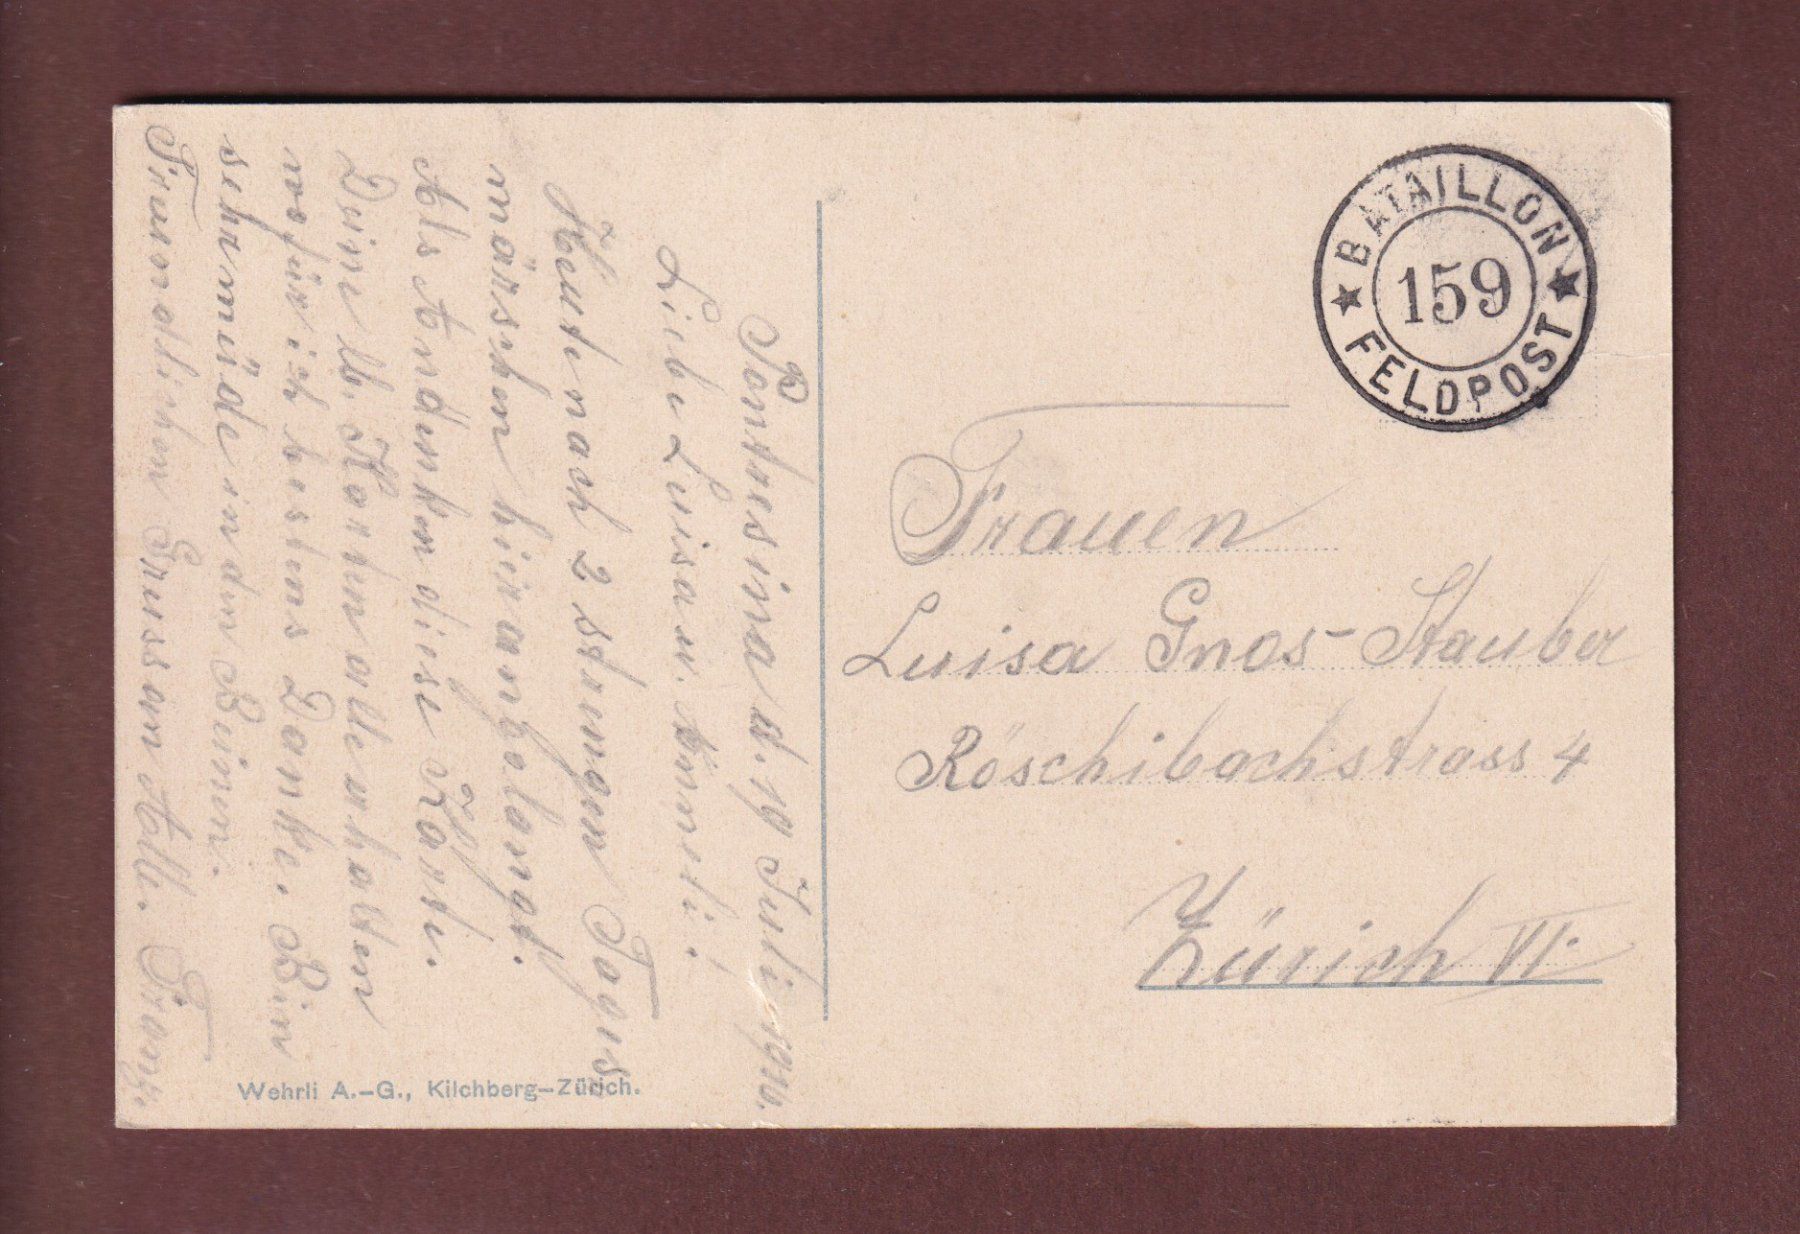 Pontresina d. 19 Juli 1910.
Liebe Luisa u. Anneli!
Heute nach 2 stüngen Tages
märschen hier angelangt.
Als Andenken diese Karte.
Deine lb. Karten alle erhalten
wofür ich bestens Danke. Bin
sehr müde in den Beinen.
Freundlichen Gruss an Alle. Franz.
Wehrli A.-G., Kilchberg-Zürich.
BATAILLON
159
FELDPOST
Frauen
Luisa Gnos-Stauber
Röschibachstrass 4
Zürich VI.